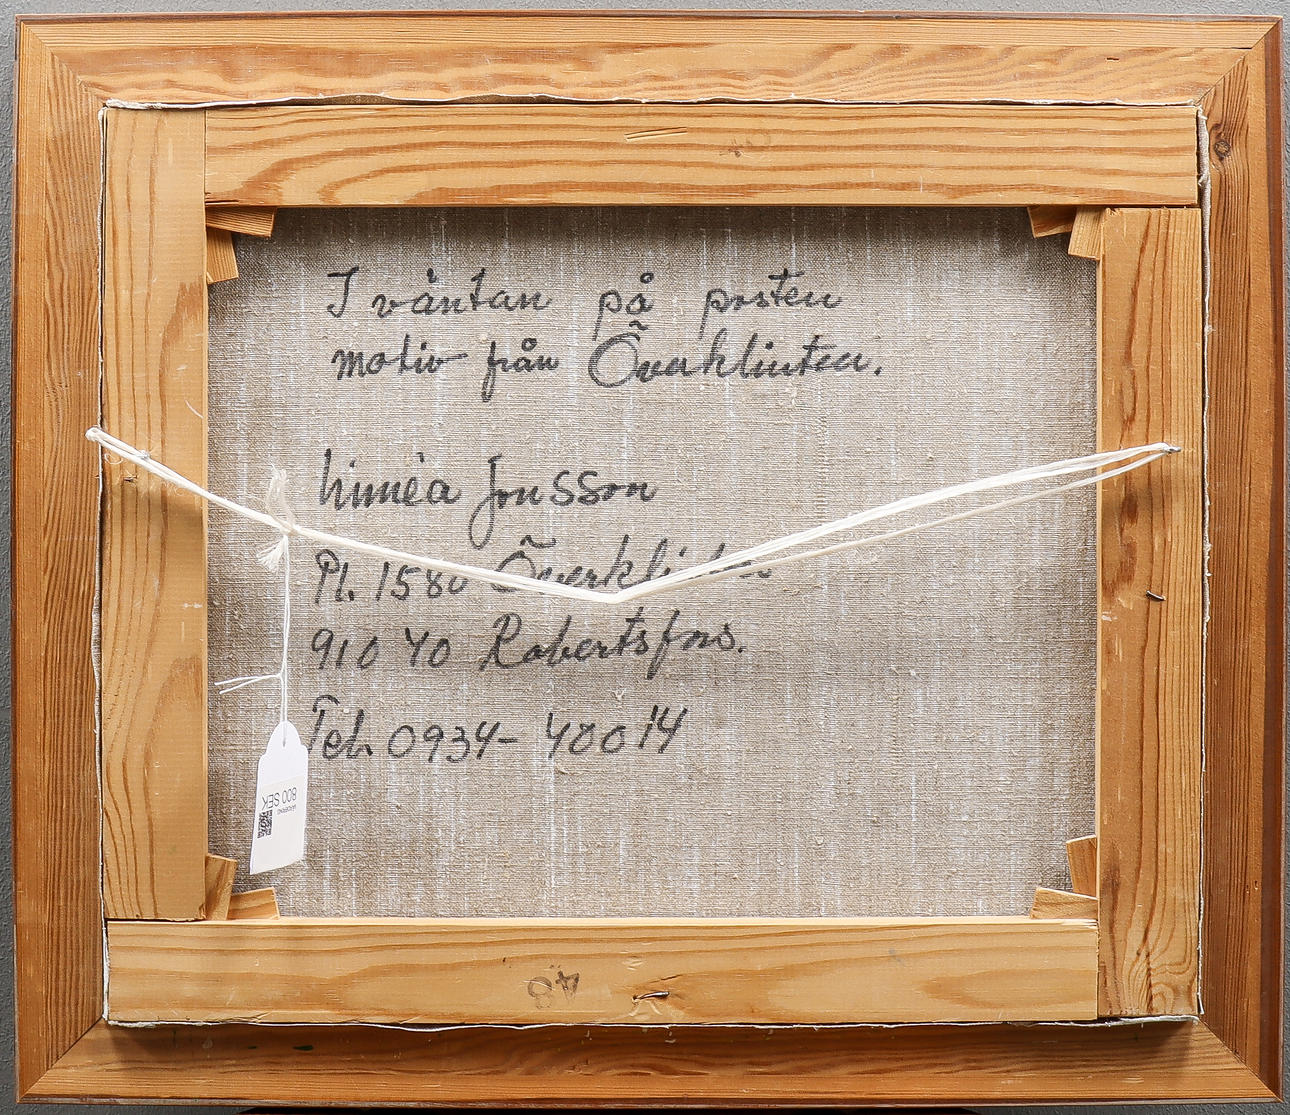 I väntan på posten
motiv från Överklinten.
Linnéa Jonsson
Pl. 1580 Överklinten
910 40 Robertsfors.
Tel. 0934-40014
800 SEK
48